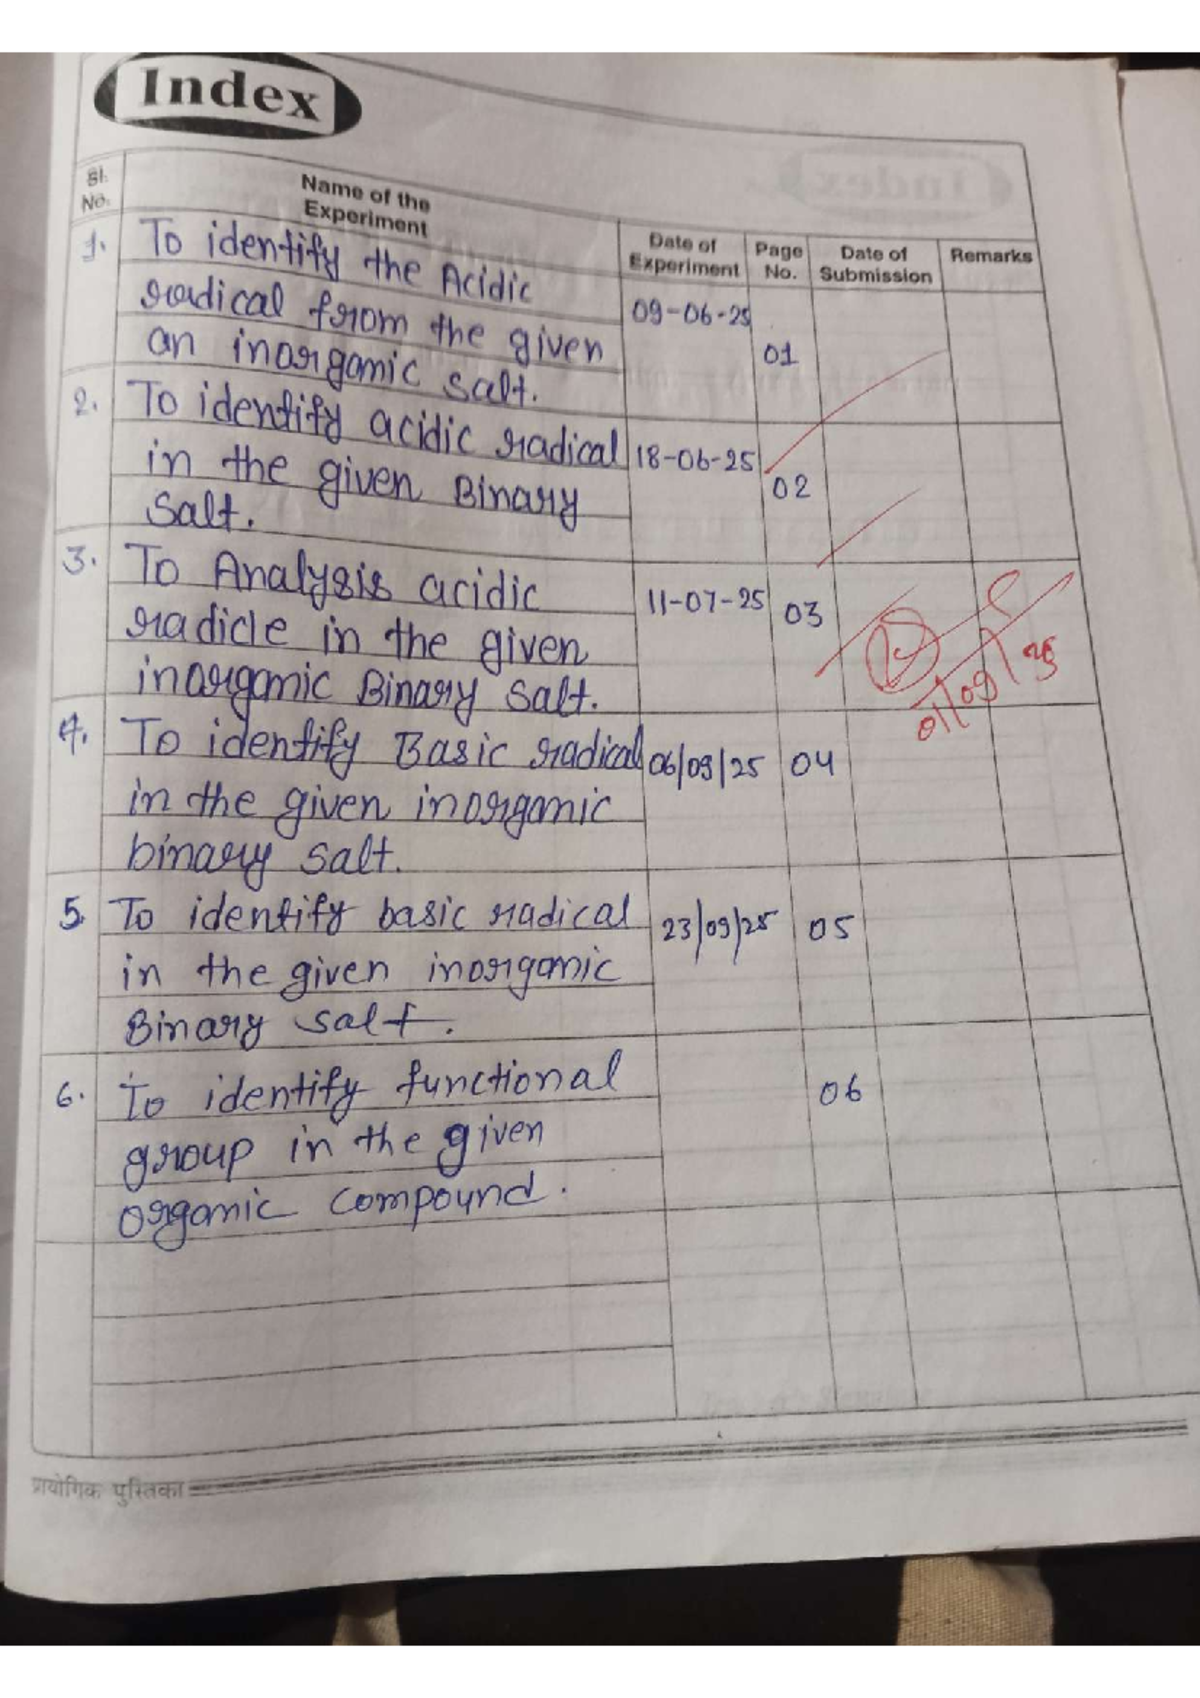 Index
Sl. No.
Name of the Experiment
Date of Experiment
Page No.
Date of Submission
Remarks
1. To identify the Acidic
radical from the given
an inorganic salt.
09-06-25
01
2. To identify acidic radical
in the given Binary
Salt.
18-06-25
02
3. To Analysis acidic
radicle in the given
inorganic Binary salt.
11-07-25
03
01/09/25
4. To identify Basic radical
in the given inorganic
binary salt.
06/09/25
04
5. To identify basic radical
in the given inorganic
Binary salt.
23/09/25
05
6. To identify functional
group in the given
organic compound.
06
प्रायोगिक पुस्तिका